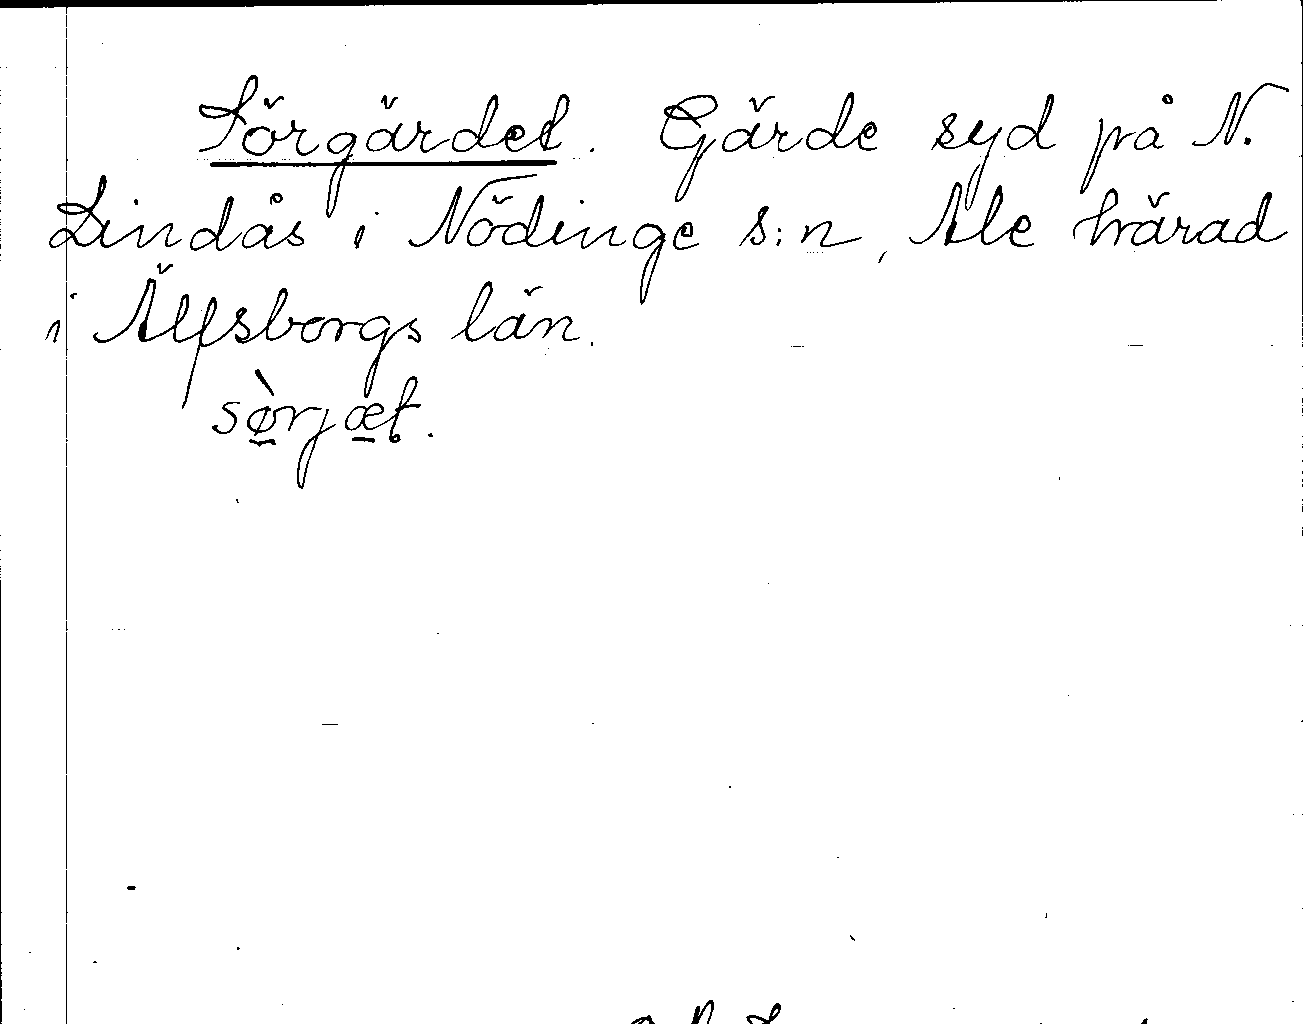 Sörgärdet. Gärde syd på N.
Lindås i Nödinge s:n, Ale härad
i Älfsborgs län.
sø̀rjæt.